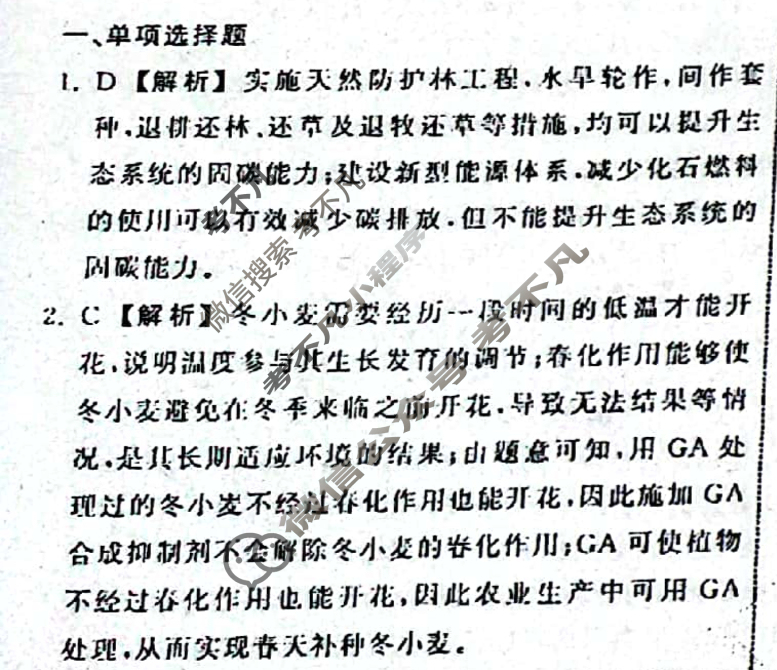 一、单项选择题
1. D【解析】实施天然防护林工程,水旱轮作,间作套
种,退耕还林、还草及退牧还草等措施,均可以提升生
态系统的固碳能力;建设新型能源体系,减少化石燃料
的使用可以有效减少碳排放,但不能提升生态系统的
固碳能力。
2. C【解析】冬小麦需要经历一段时间的低温才能开
花,说明温度参与其生长发育的调节;春化作用能够使
冬小麦避免在冬季来临之前开花,导致无法结果等情
况,是其长期适应环境的结果;由题意可知,用 GA 处
理过的冬小麦不经过春化作用也能开花,因此施加 GA
合成抑制剂不会解除冬小麦的春化作用;GA 可使植物
不经过春化作用也能开花,因此农业生产中可用 GA
处理,从而实现春天补种冬小麦。
考不凡
微信搜索考不凡
考不凡小程序
微信公众号考不凡